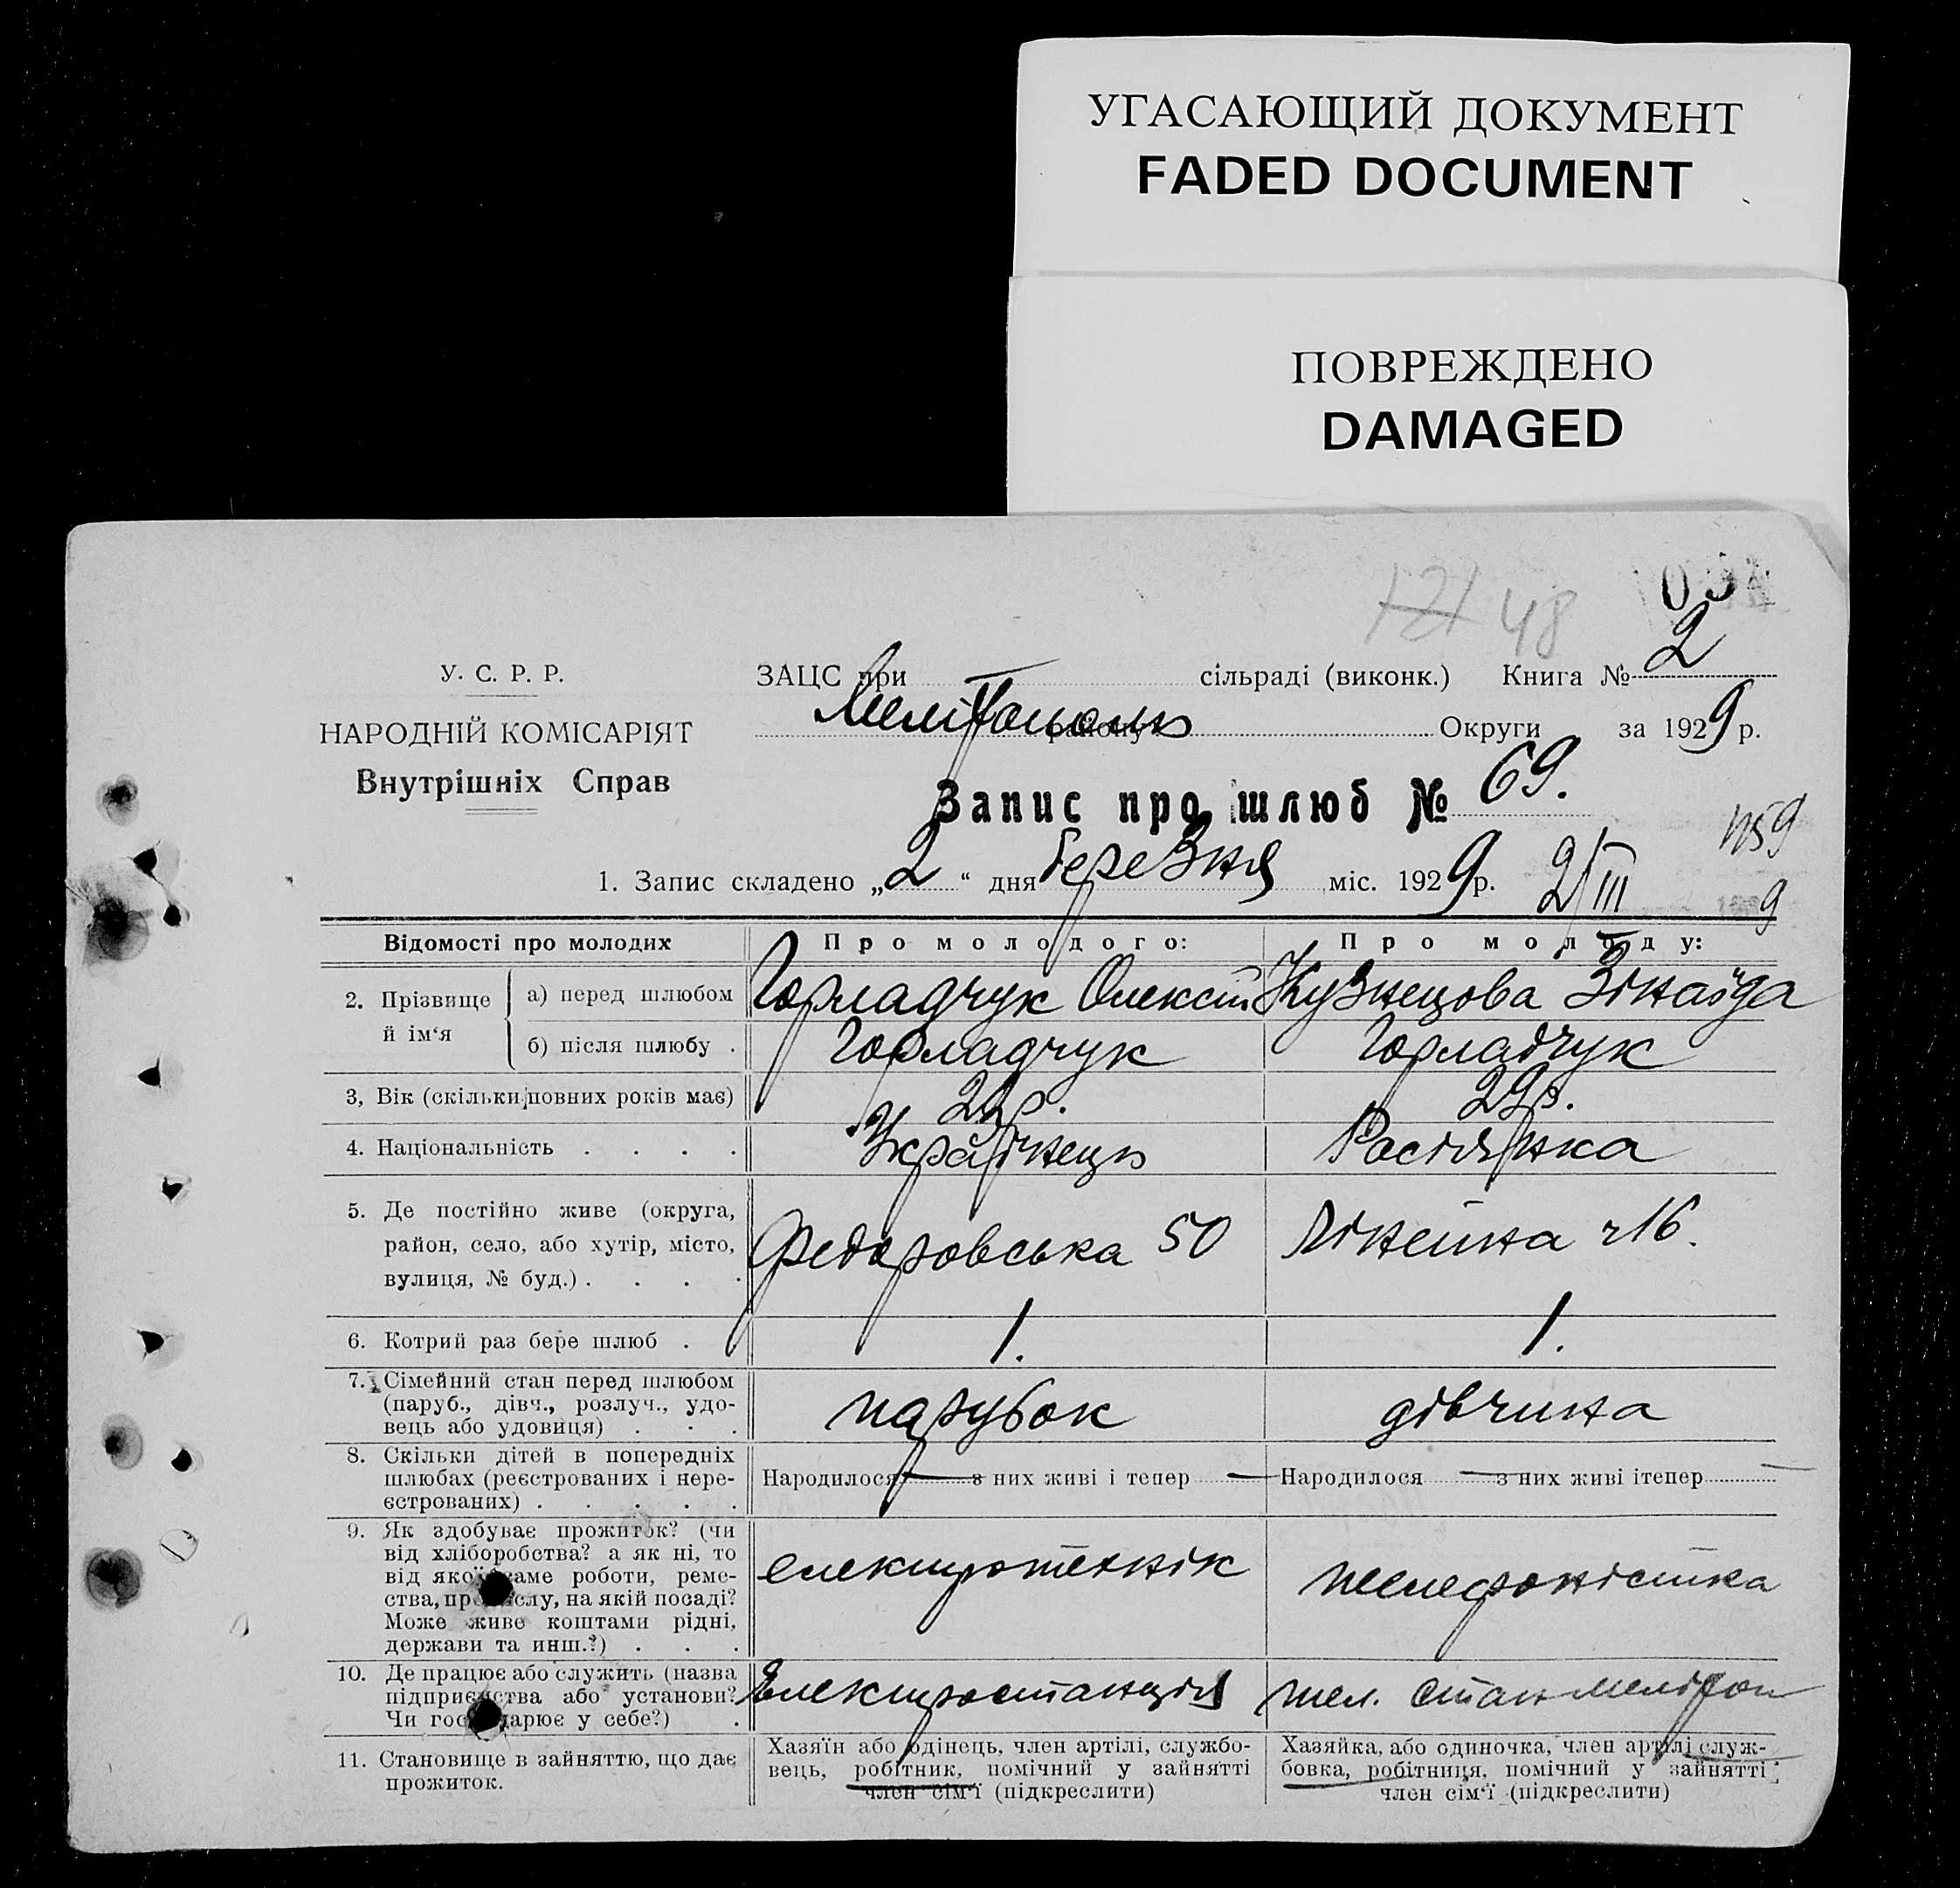 УГАСАЮЩИЙ ДОКУМЕНТ
FADED DOCUMENT
ПОВРЕЖДЕНО
DAMAGED
121 48
У. С. Р. Р.
НАРОДНІЙ КОМІСАРІЯТ
Внутрішніх Справ
ЗАЦС при сільраді (виконк.) Книга № 2
Мелітополь району Округи за 1929 р.
Запис про шлюб № 69.
1. Запис складено „2“ дня березня міс. 1929 р. 2/III
Відомості про молодих
Про молодого:
Про молоду:
2. Прізвище й ім‘я
а) перед шлюбом
Горладчук Олексій
Кузнецова Зінаїда
б) після шлюбу .
Горладчук
Горладчук
3, Вік (скільки повних років має)
22р.
29р.
4. Національність . . . .
Українець
Росіянка
5. Де постійно живе (округа,
район, село, або хутір, місто,
вулиця, № буд.) . . . .
Федоровська 50
Лінейна ч16.
6. Котрий раз бере шлюб .
1.
1.
7. Сімейний стан перед шлюбом
(паруб., дівч., розлуч., удо-
вець або удовиця) . . .
парубок
дівчина
8. Скільки дітей в попередніх
шлюбах (реєстрованих і нере-
єстрованих) . . . . .
Народилося — з них живі і тепер —
Народилося — з них живі ітепер —
9. Як здобуває прожиток? (чи
від хліборобства? а як ні, то
від якої саме роботи, реме-
ства, промислу, на якій посаді?
Може живе коштами рідні,
держави та инш.?) . . .
електротехнік
телефоністка
10. Де працює або служить (назва
підприємства або установи?
Чи господарює у себе?) .
Електростанція
тел. стан Мелітоп
11. Становище в зайняттю, що дає
прожиток.
Хазяїн або одінець, член артілі, службо-
вець, робітник, помічний у зайнятті
член сім‘ї (підкреслити)
Хазяйка, або одиночка, член артілі служ-
бовка, робітниця, помічний у зайнятті
член сім‘ї (підкреслити)